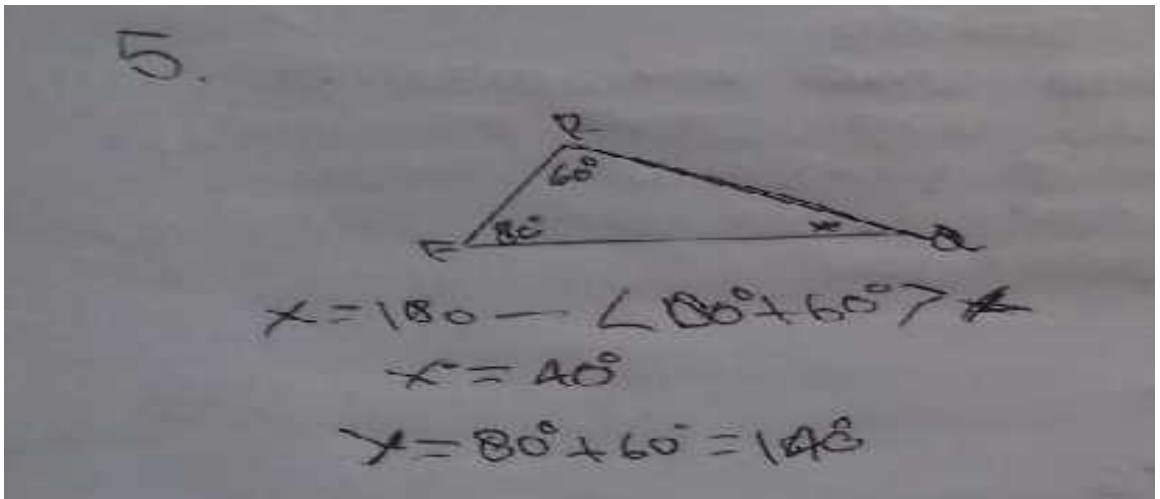 5.
60°
80°
x
x = 180 - < 80° + 60° >
x = 40°
y = 80° + 60° = 140°